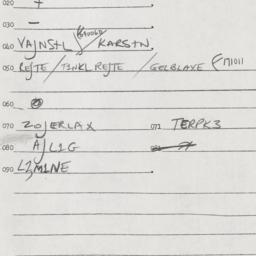 020 +
030 —
040 VAJNSTL / KARSTN
050 REJTE / T3NKL REJTE / GELBLAXE
060
070 ZOJERLAX 071 TERPK3
080 AJLIG
090 LZMINE